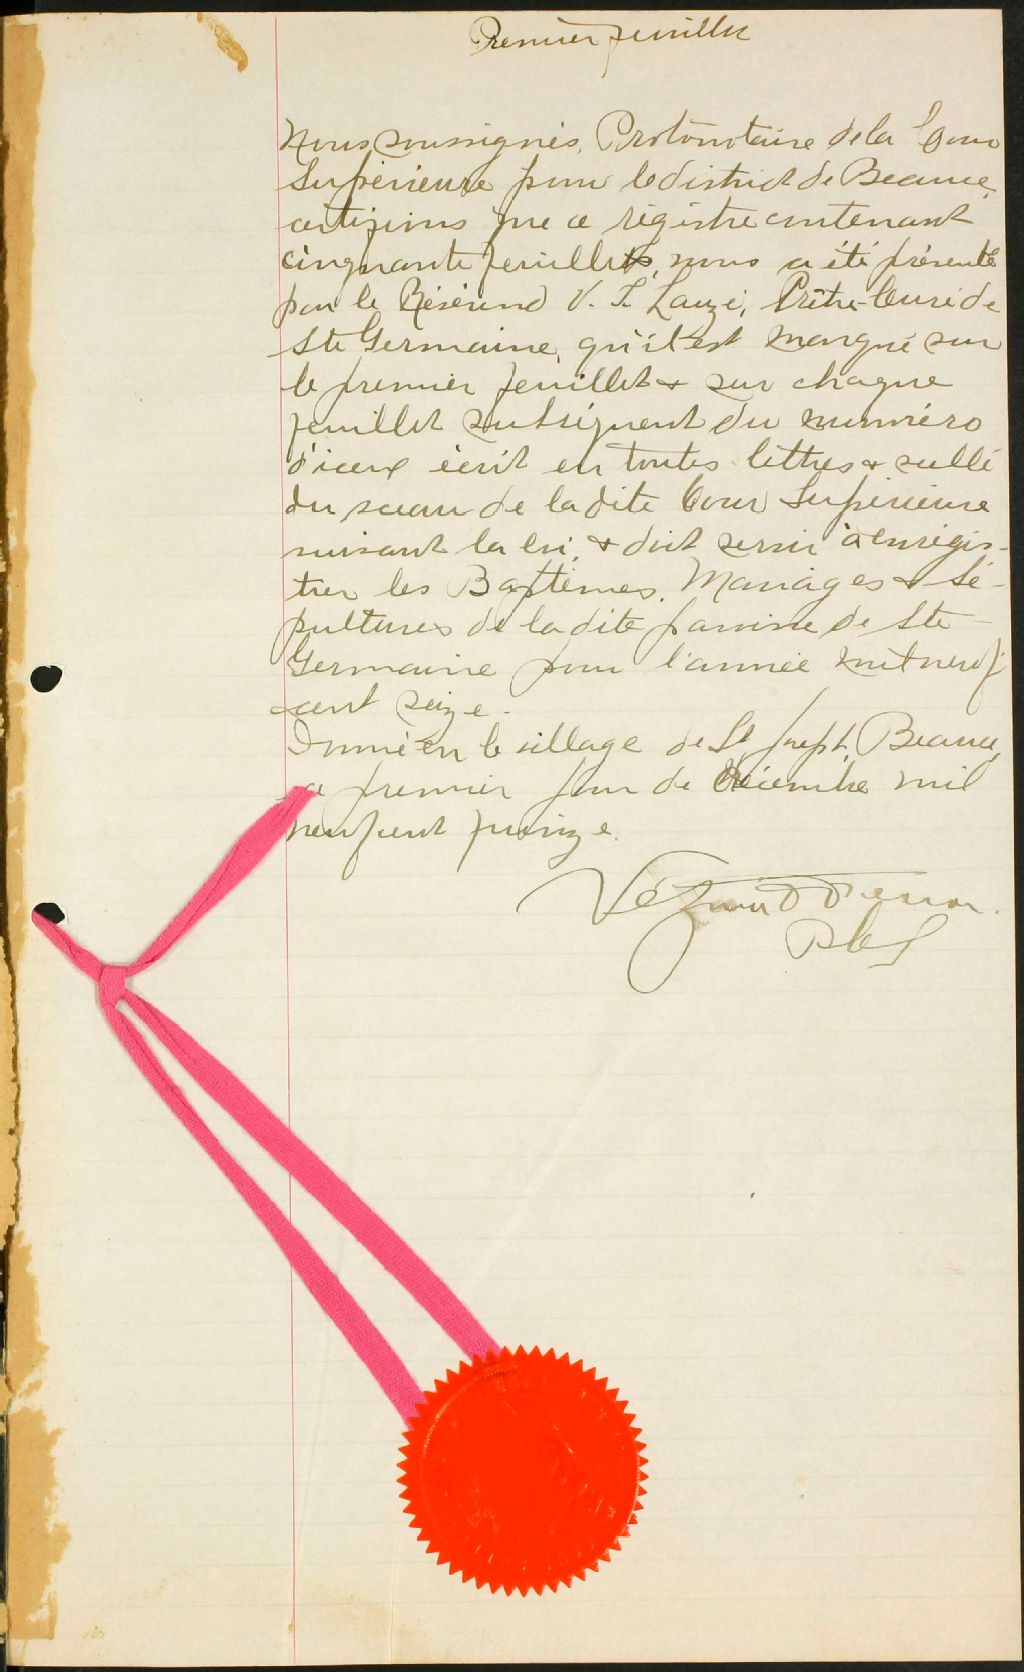 Premier feuillet
Nous soussignés, Protonotaire de la Cour
Supérieure pour le district de Beauce,
certifions que ce régistre contenant
cinquante feuillets, nous a été présenté
par le Révérend V. T. Lauzé, Prêtre-Curé de
Ste Germaine, qu'il est marqué sur
le premier feuillet & sur chaque
feuillet subséquent du numéro
d'iceux écrit en toutes lettres & scellé
du sceau de la dite Cour Supérieure
suivant la loi, & doit servir à enrégis-
trer les Baptêmes, Mariages & Sé-
pultures de la dite paroisse de Ste
Germaine pour l'année mil neuf
cent seize.
Donné en le village de St Joseph, Beauce,
ce premier jour de Décembre mil
neuf cent quinze.
PCS